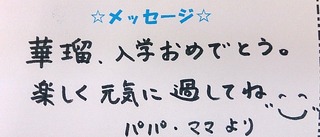 ☆メッセージ☆
華瑠、入学おめでとう。
楽しく元気に過してね
パパ・ママより